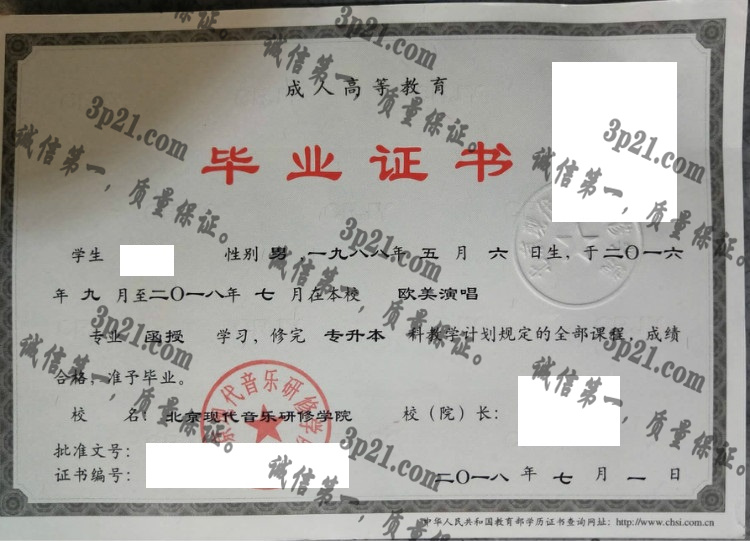 成人高等教育
毕业证书
学生 性别 男 ,一九八八年 五 月 六 日生，于二〇一六
年 九 月至二〇一八年 七 月在本校 欧美演唱
专业 函授 学习，修完 专升本 科教学计划规定的全部课程，成绩
合格，准予毕业。
校 名：北京现代音乐研修学院 校（院）长：
批准文号：
证书编号： 二〇一八 年 七 月 一 日
中华人民共和国教育部学历证书查询网址：http://www.chsi.com.cn
京现代音乐研修学院
3p21.com
诚信第一，质量保证。
3p21.com
诚信第一，质量保证。
3p21.com
诚信第一，质量保证。
3p21.com
诚信第一，质量保证。
3p21.com
诚信第一，质量保证。
3p21.com
诚信第一，质量保证。
3p21.com
诚信第一，质量保证。